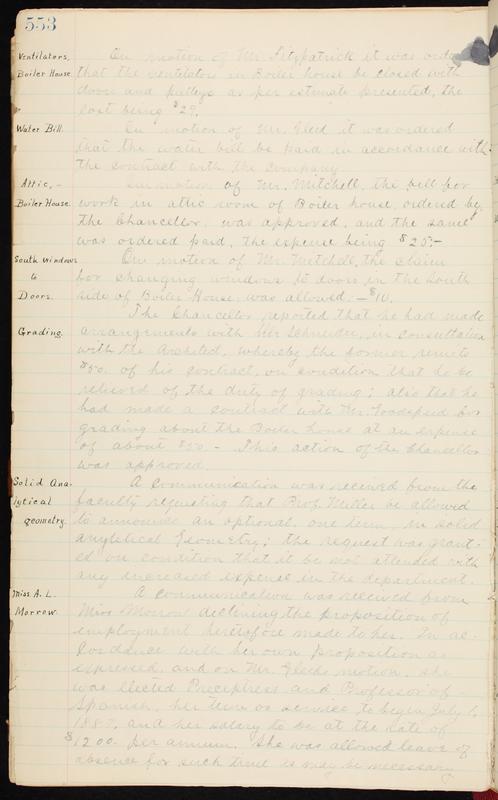 553
Ventilators. On motion of Mr. Fitzpatrick it was orde
Boiler House. that the ventilators in Boiler house be closed with
doors and pulleys as per estimate presented, the
cost being $29.
Water Bill. On motion of Mr. Gleed it was ordered
that the water bill be paid in accordance with
the contract with the company
Attic, - On motion of Mr. Mitchell, the bill for
Boiler House. work in attic room of Boiler house, ordered by
the Chancellor, was approved, and the same
was ordered paid, the expense being $25.-
South windows On motion of Mr. Mitchell, the claim
to for changing windows to doors in the South
Doors. side of Boiler House was allowed. - $10.
The Chancellor reported that he had made
Grading. arrangements with Mr. Schneider, in consultation
with the Architect, whereby the former remits
$50. of his contract, on condition that he be
relieved of the duty of grading; also that he
had made a contract with Mr. for
grading about the Boiler house at an expense
of about $50 - This action of the Chancellor
was approved.
Solid Ana- A communication was received from the
lytical faculty requesting that Prof. Miller be allowed
geometry. to announce an optional, one term, in solid
analytical Geometry; the request was grant-
ed on condition that it be not attended with
any increased expense in the department.
Miss A. L. A communication was received from
Morrow. Miss Morrow declining the proposition of
employment heretofore made to her. In ac-
cordance with her own proposition as
expressed, and on Mr. Gleeds motion, she
was elected Preceptress and Professor of
Spanish, her term of service to begin July 1,
1887, and her salary to be at the rate of
$1200. per annum. She was allowed leave of
absence for such time as may be necessary